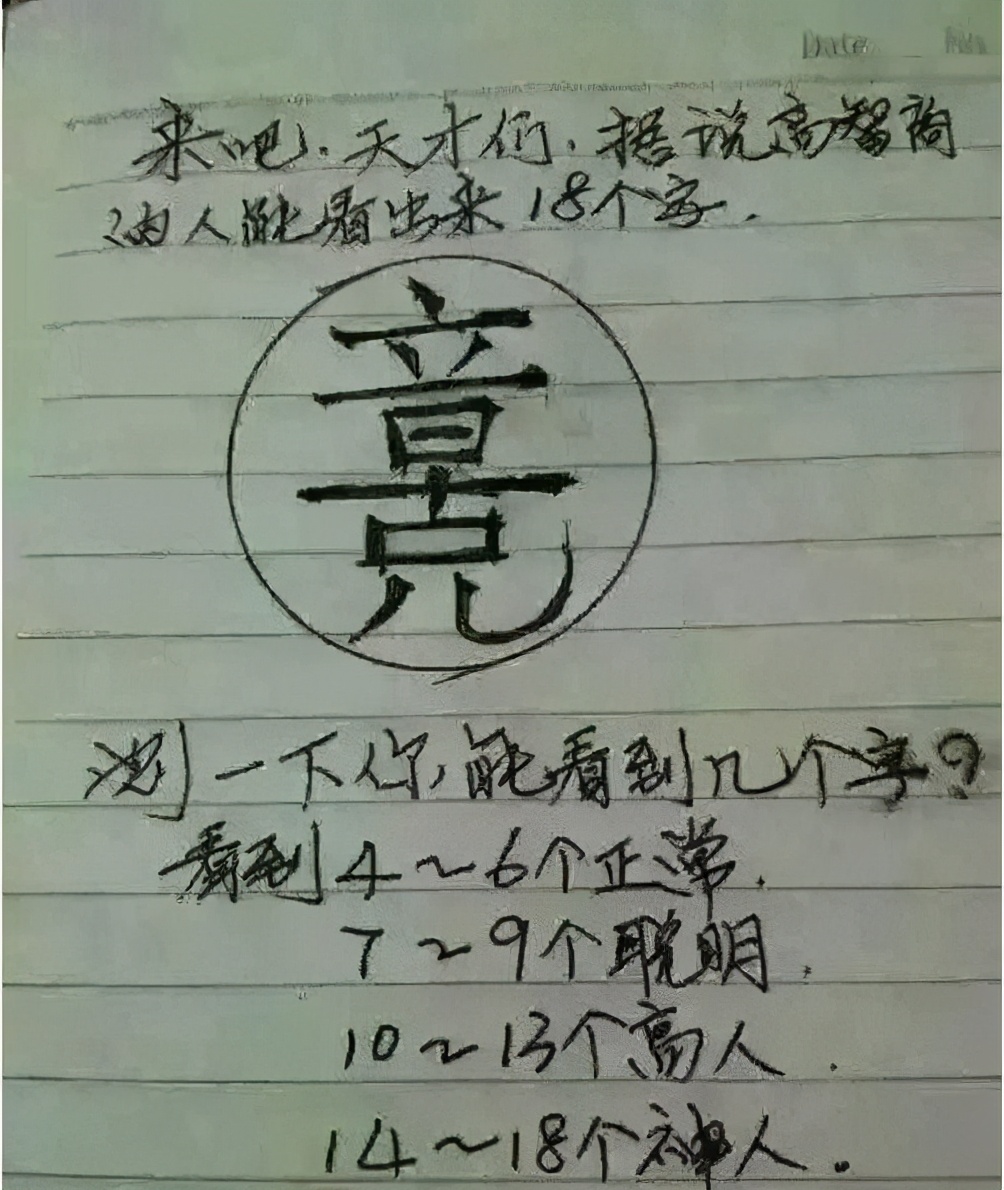 Date
来吧.天才们.据说高智商
的人能看出来18个字.
竟
测一下你,能看到几个字?
看到4～6个正常.
7～9个聪明.
10～13个高人.
14～18个神人.